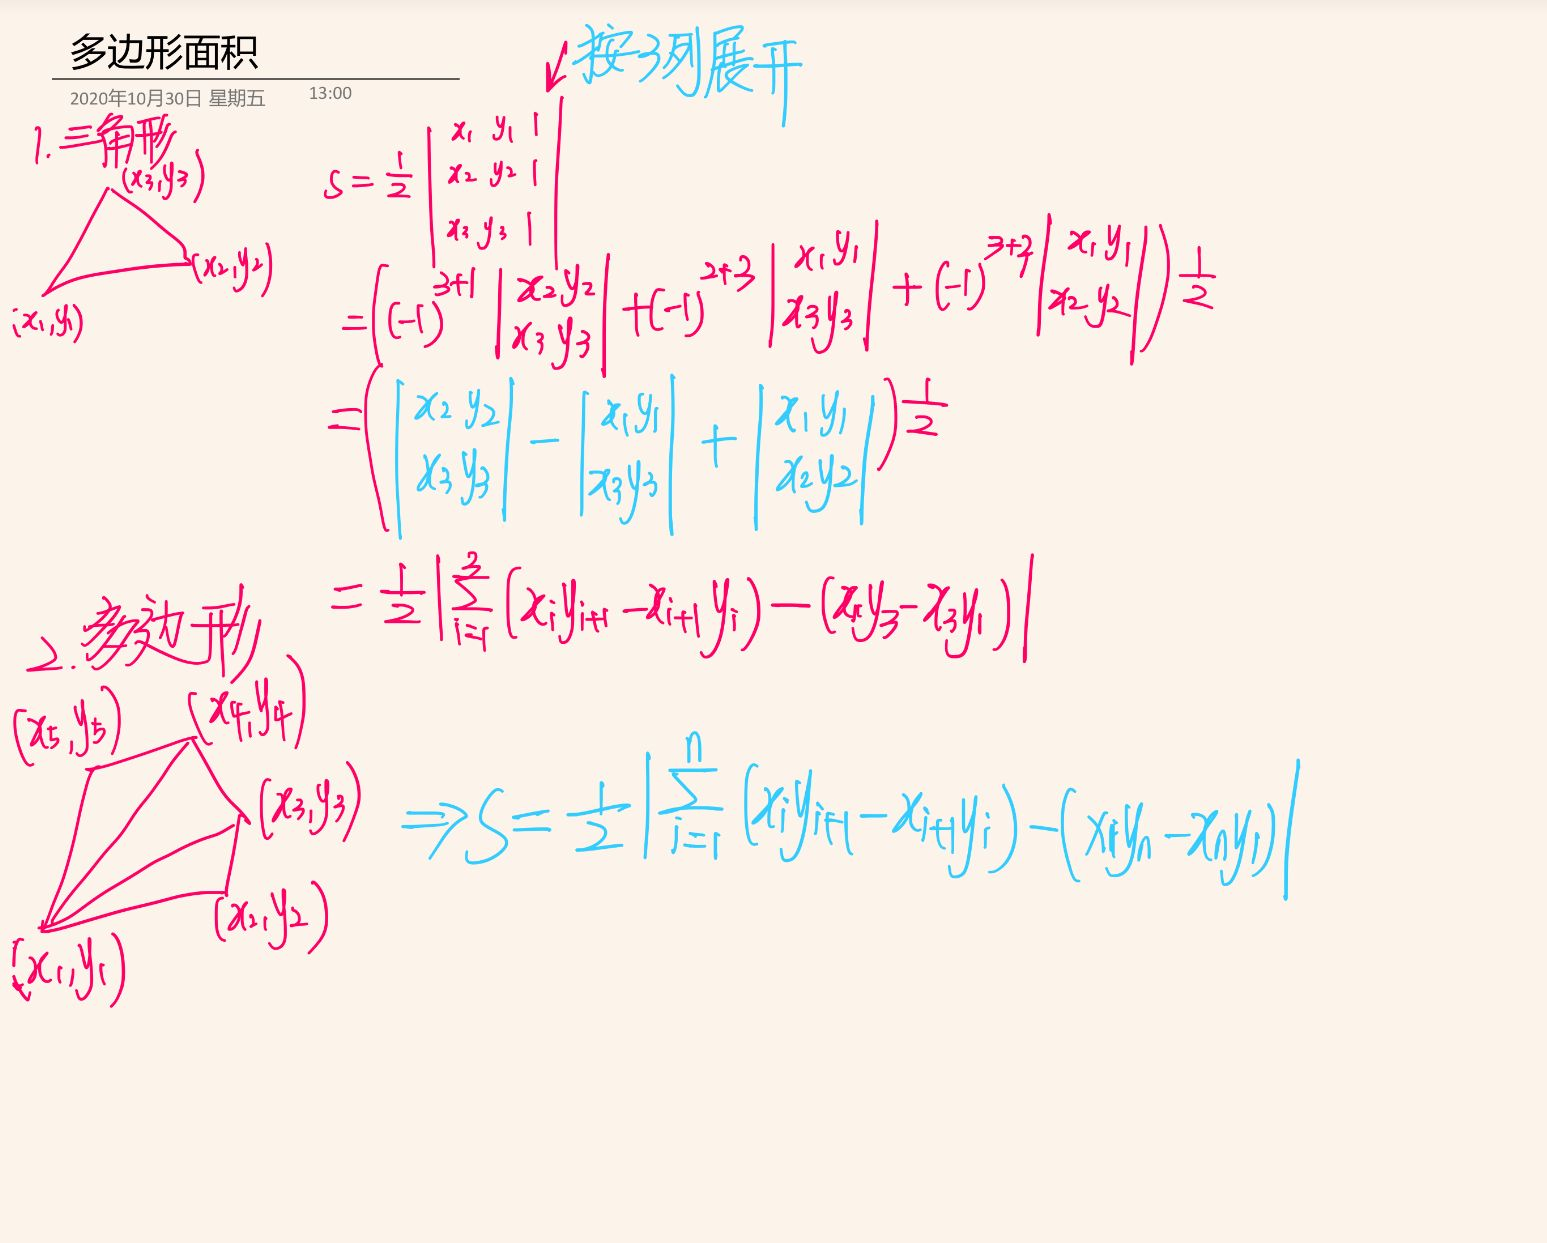 多边形面积
2020年10月30日 星期五 13:00
按3列展开
1.三角形
(x3,y3)
(x2,y2)
(x1,y1)
S = 1/2 | x1 y1 1
x2 y2 1
x3 y3 1 |
= ((-1)^3+1 | x2 y2 x3 y3 | + (-1)^2+3 | x1 y1 x3 y3 | + (-1)^3+3 | x1 y1 x2 y2 |) 1/2
= (| x2 y2 x3 y3 | - | x1 y1 x3 y3 | + | x1 y1 x2 y2 |) 1/2
= 1/2 | Σ i=1 (xi yi+1 - xi+1 yi) - (x1 y3 - x3 y1) |
2.多边形
(x5,y5)
(x4,y4)
(x3,y3)
(x2,y2)
(x1,y1)
⇒ S = 1/2 | n Σ i=1 (xi yi+1 - xi+1 yi) - (x1 yn - xn y1) |